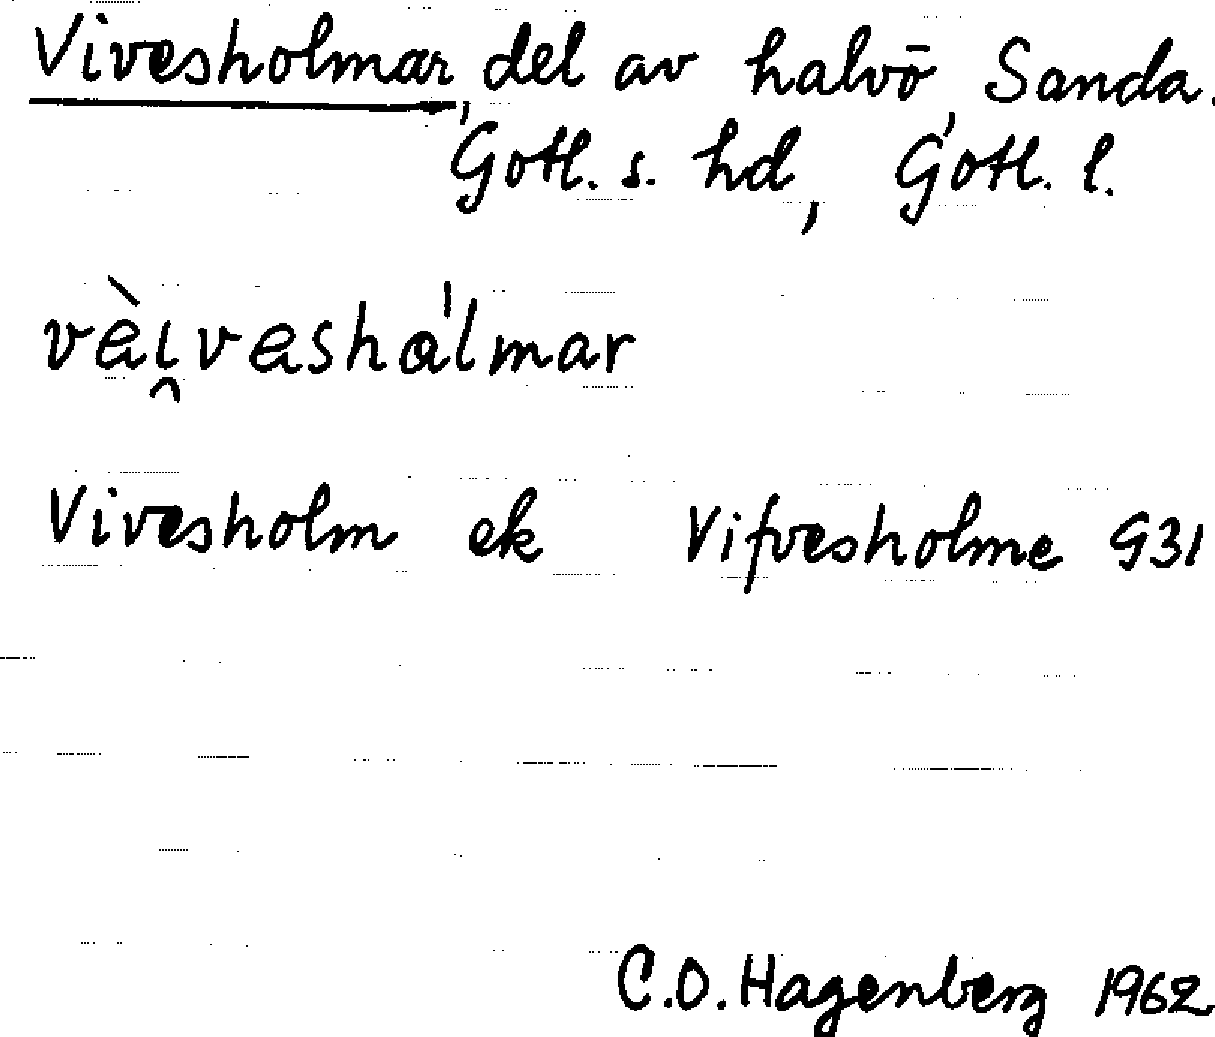 Vivesholmar, del av halvö, Sanda.
Gotl. s. hd, Gotl. l.
vèi̯vashålmar
Vivesholm ek Vifvesholme G31
C.O. Hagenberg 1962